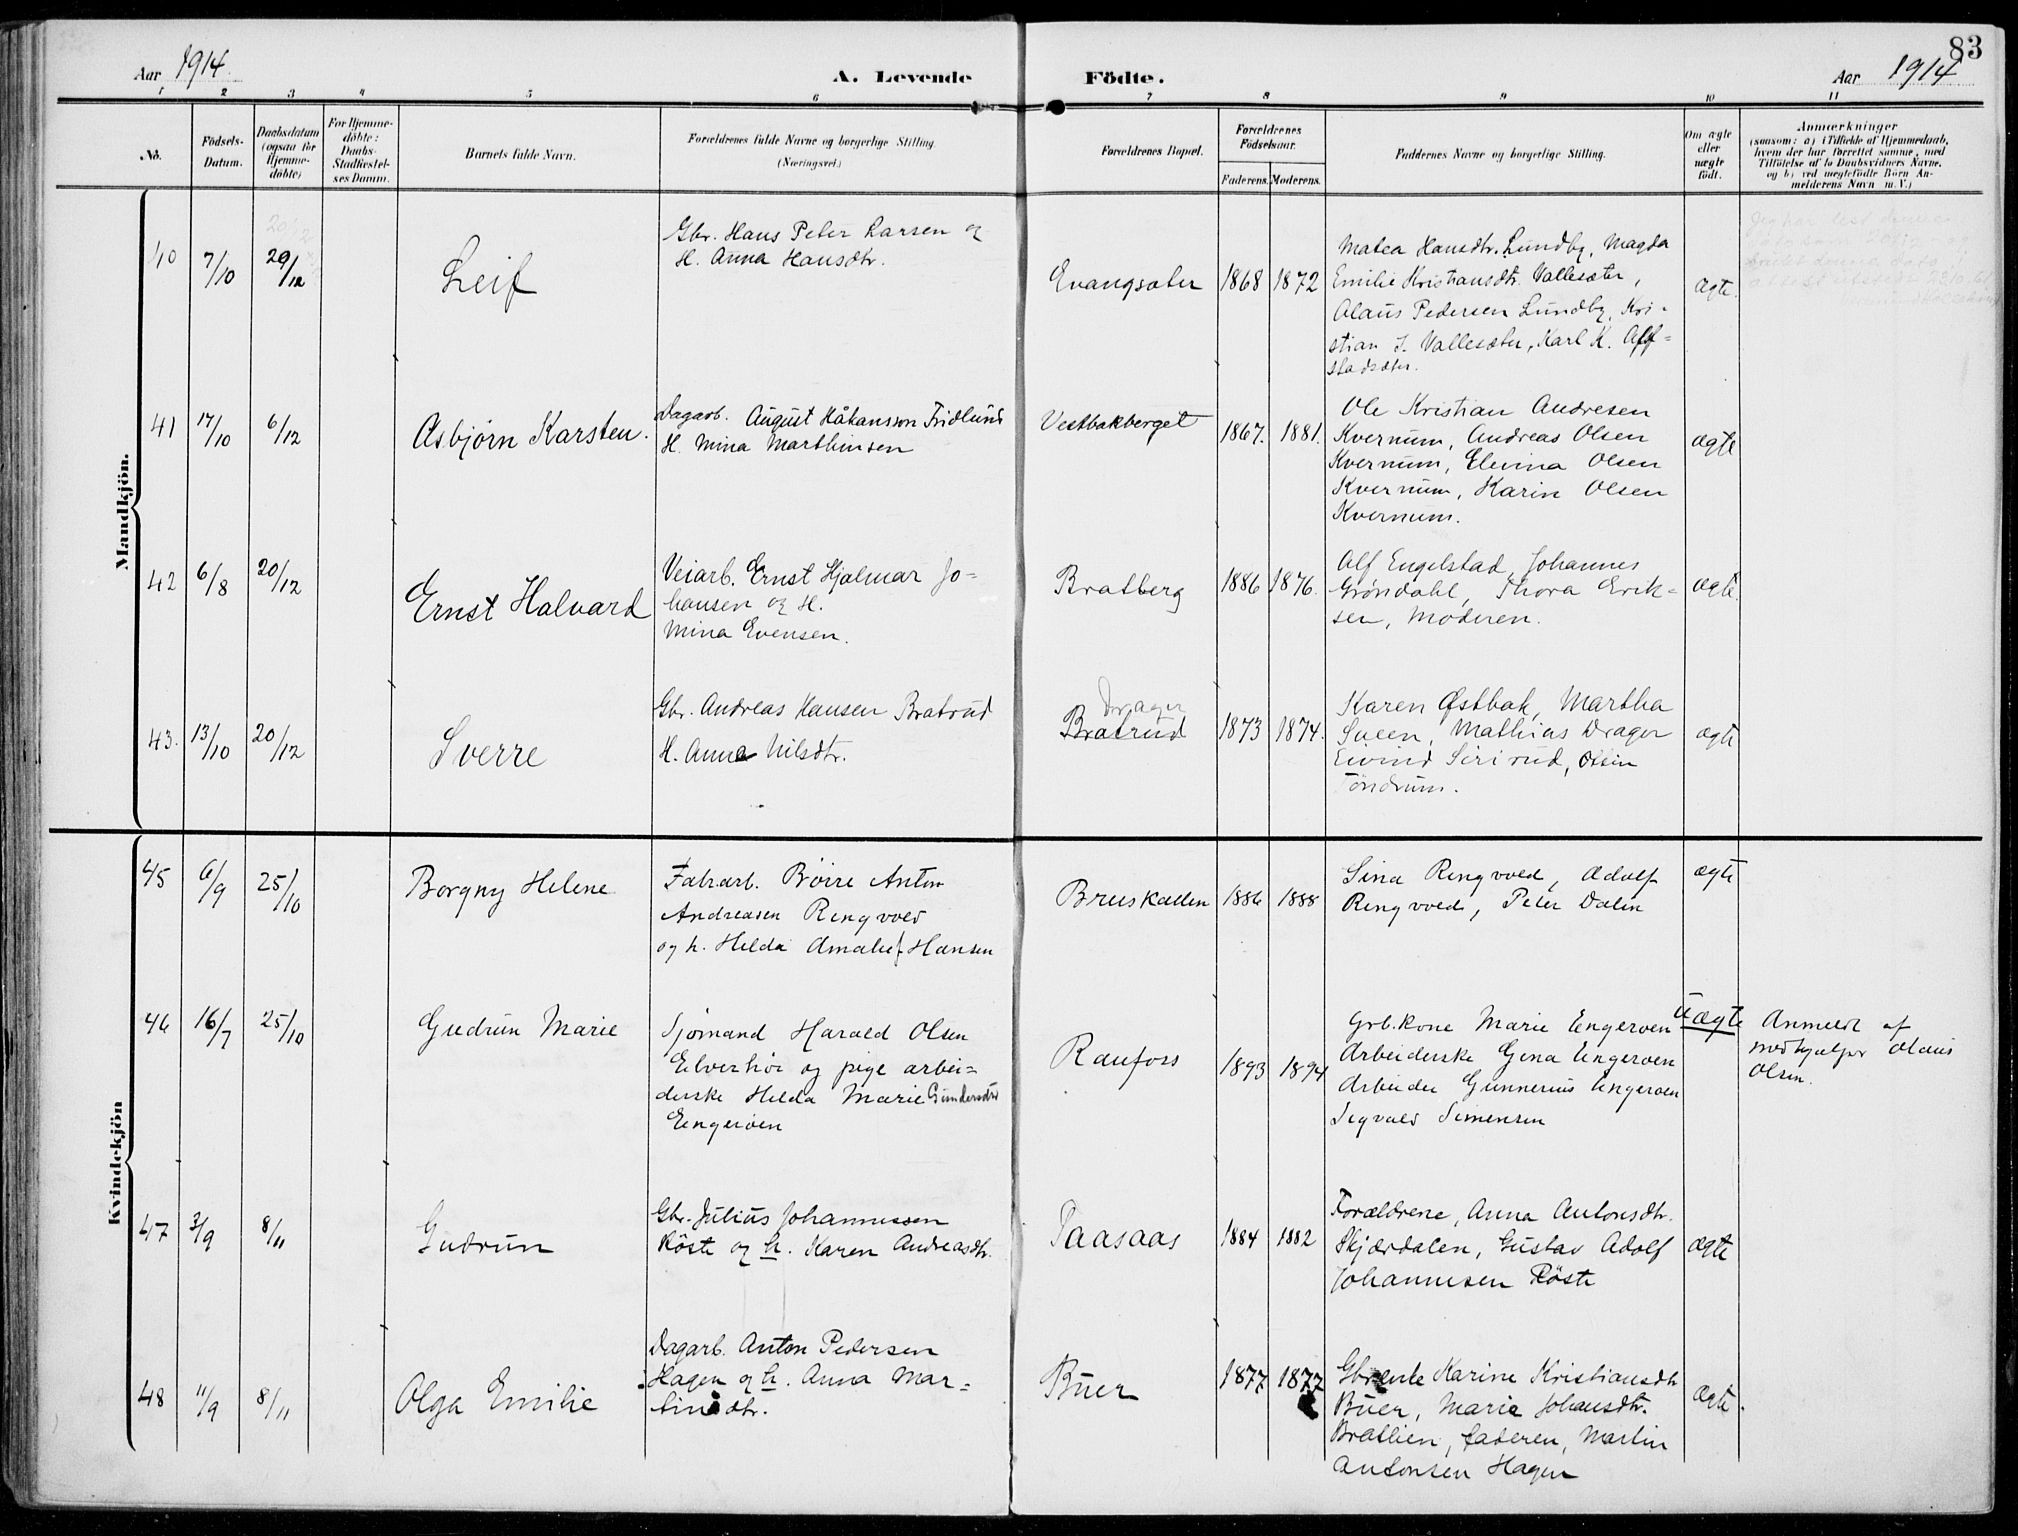 83
Aar 1914
A. Levende Födte.
Aar 1914
1 2 3 4 5 6 7 8 9 10 11
No.
Födsels-
Datum.
Daabsdatum
(ogsaa for
Hjemme-
döbte)
For Hjemme-
döbte:
Daabs-
Stadfæstel-
ses Datum.
Barnets fulde Navn.
Forældrenes fulde Navne og borgerlige Stilling
(Næringsvei.)
Forældrenes Bopæl.
Forældrenes
Födselsaar.
Faderens. Moderens.
Faddernes Navne og borgerlige Stilling.
Om ægte
eller
uægte
født.
Anmærkninger
(saasom: a) i Tilfælde af Hjemmedaab,
hvem der har forrettet samme, med
Tilföielse af to Daabsvidners Navne,
og b) ved uægtefödte Börn An-
melderens Navn m. V.)
Mandkjön.
40
7/10
20/12
Leif
Gbr. Hans Peter Larsen og
H. Anna Hansdtr.
Evangsæter
1868
1872
Matea Hansdtr. Lundby, Magda
Emilie Kristiansdtr. Vallesæter,
Olaus Pedersen Lundby, Kri-
stian J. Vallesæter, Karl K. Aff-
stadsæter.
ægte.
41
17/10
6/12
Asbjørn Karsten.
Dagarb. August Håkansson Fridlund
H. Mina Marthinsen
Vestbakberget
1867.
1881.
Ole Kristian Andresen
Kvernum, Andreas Olsen
Kvernum, Elevina Olsen
Kvernum, Karin Olsen
Kvernum.
ægte
42
6/8
20/12
Ernst Halvard
Veiarb. Ernst Hjalmar Jo-
hansen og H.
Mina Evensen.
Bratberg
1886
1876.
Alf Engelstad, Johannes
Grøndahl, Thora Erik-
sen, Moderen.
ægte.
43.
13/10
20/12
Sverre
Gbr. Andreas Hansen Bratrud
H. Anna Nilsdtr.
Drager
Bratrud
1873
1874.
Karen Østbak, Martha
Sveen, Mathias Drager
Eivind Sirirud,
Töndrum.
ægte
Kvindekjön
45
6/9
25/10
Borgny Helene
Fabrarb. Børre Anton
Andreasen Ringvold
og h. Helda Amalie Hansen
Bruskallen
1886
1888
Sina Ringvold, Adolf
Ringvold, Peter Dalen
ægte
46
16/7
25/10
Gudrun Marie
Sjømand Harald Olsen
Elverhöi og pige arbei-
derske Helda Marie Gundersdtr
Engeröen
Raufoss
1893
1894
Grb.kone Marie Engeroen
Arbeiderske Gina Engeroen
Arbeider Gunnerius Engeroen
Sigvald Simensen
Uægte
Anmeldt af
medhjælper Olaus
Olsen.
47
3/9
8/11
Gudrun
Gbr. Julius Johannessen
Röste og h. Karen Andreasdtr.
Paasaas
1884
1882
Forældrene, Anna Antonsdtr.
Skjærdalen, Gustav Adolf
Johannesen Röste
ægte
48
11/9
8/11
Olga Emilie
Dagarb. Anton Pedersen
Hagen og h. Anna Mar-
tinsdtr.
Buer
1877
1877
Gbrenke Karine Kristiansdtr
Buer, Marie Johansdtr.
Bratlien, faderen, Martin
Antonsen Hagen
ægte.